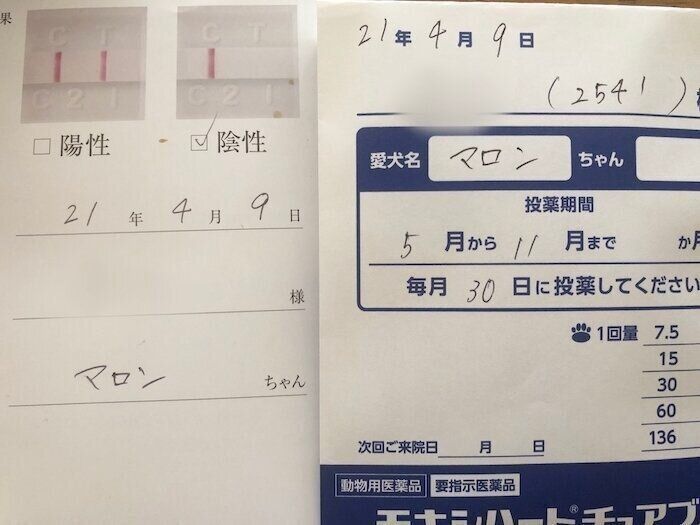 果
C T
C 2 1
C T
C 2 1
□ 陽性
☑ 陰性
21 年 4 月 9 日
様
マロン ちゃん
21 年 4 月 9 日
(2541)
愛犬名 マロン ちゃん
投薬期間
5 月から 11 月まで か月
毎月 30 日に投薬してください
1回量 7.5
15
30
60
136
次回ご来院日 月 日
動物用医薬品 要指示医薬品
モキシハート®チュアブ